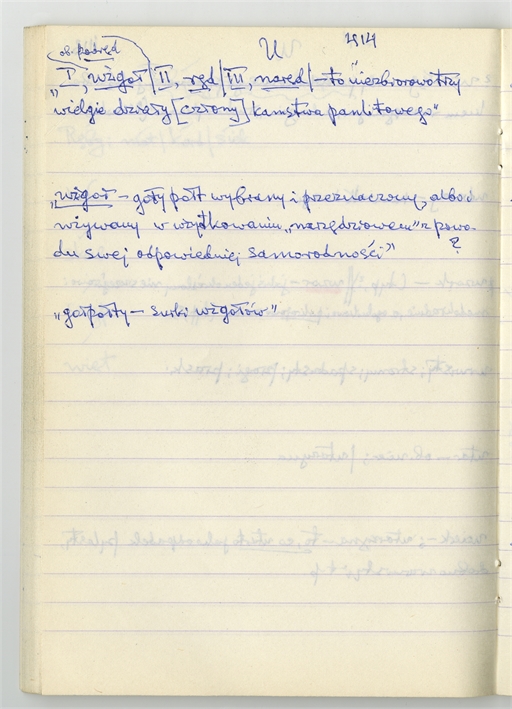 ob. pobręd
U 414
„I, wzgoł / II, ręd / III, naręd / – to niezbiorowo trzy
wielgie działy [człony] kamstwa pamłtowego”
„wzgoł – goły połt wybrany i przeznaczony, albo i
używany w użytkowaniu „narzędziowem” z powo-
du swej odpowiedniej samorodności”
?
„gołpołty – surki wzgołów”